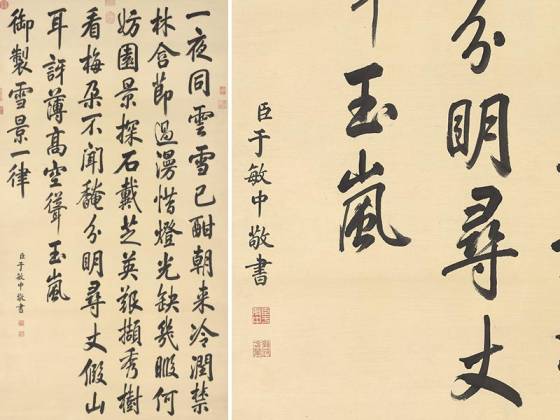 一夜同雲雪已酣朝来冷潤禁
林含節過漫惜燈光缺幾暇何
妨園景探石戴芝英艱擷秀樹
看梅朶不聞馣分明尋丈假山
耳訝薄髙空聳玉嵐
御製雪景一律
臣于敏中敬書
分明尋丈
玉嵐
臣于敏中敬書